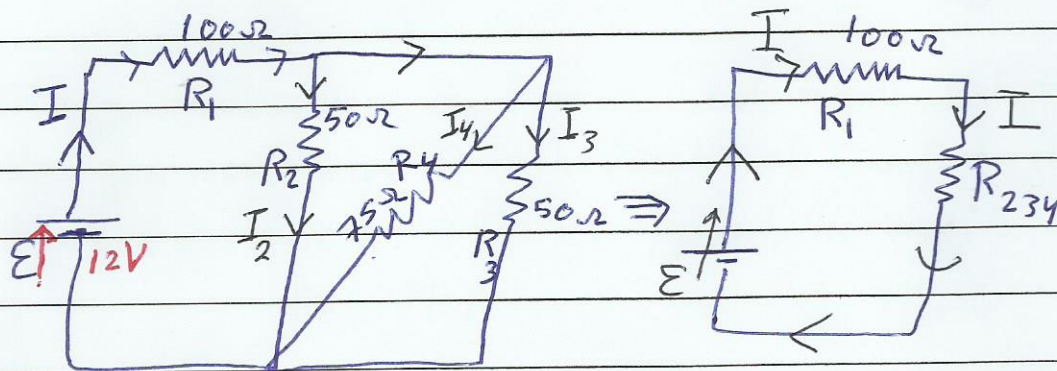 100Ω
R1
I
50Ω
R2
I4
R4
75Ω
I3
50Ω
R3
I2
ε
12V
⇒
I
100Ω
R1
I
R234
ε